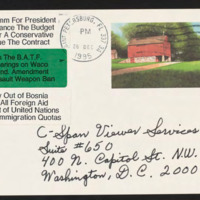 mm For President
ance The Budget
r A Conservative
ue The Contract
The B.A.T.F.
erings on Waco
nd. Amendment
sault Weapon Ban
y Out of Bosnia
All Foreign Aid
t of United Nations
mmigration Quotas
PM
1995
C-Span Viewer Services
Suite #650
400 N. Capitol St. N.W.
Washington, D.C. 2000